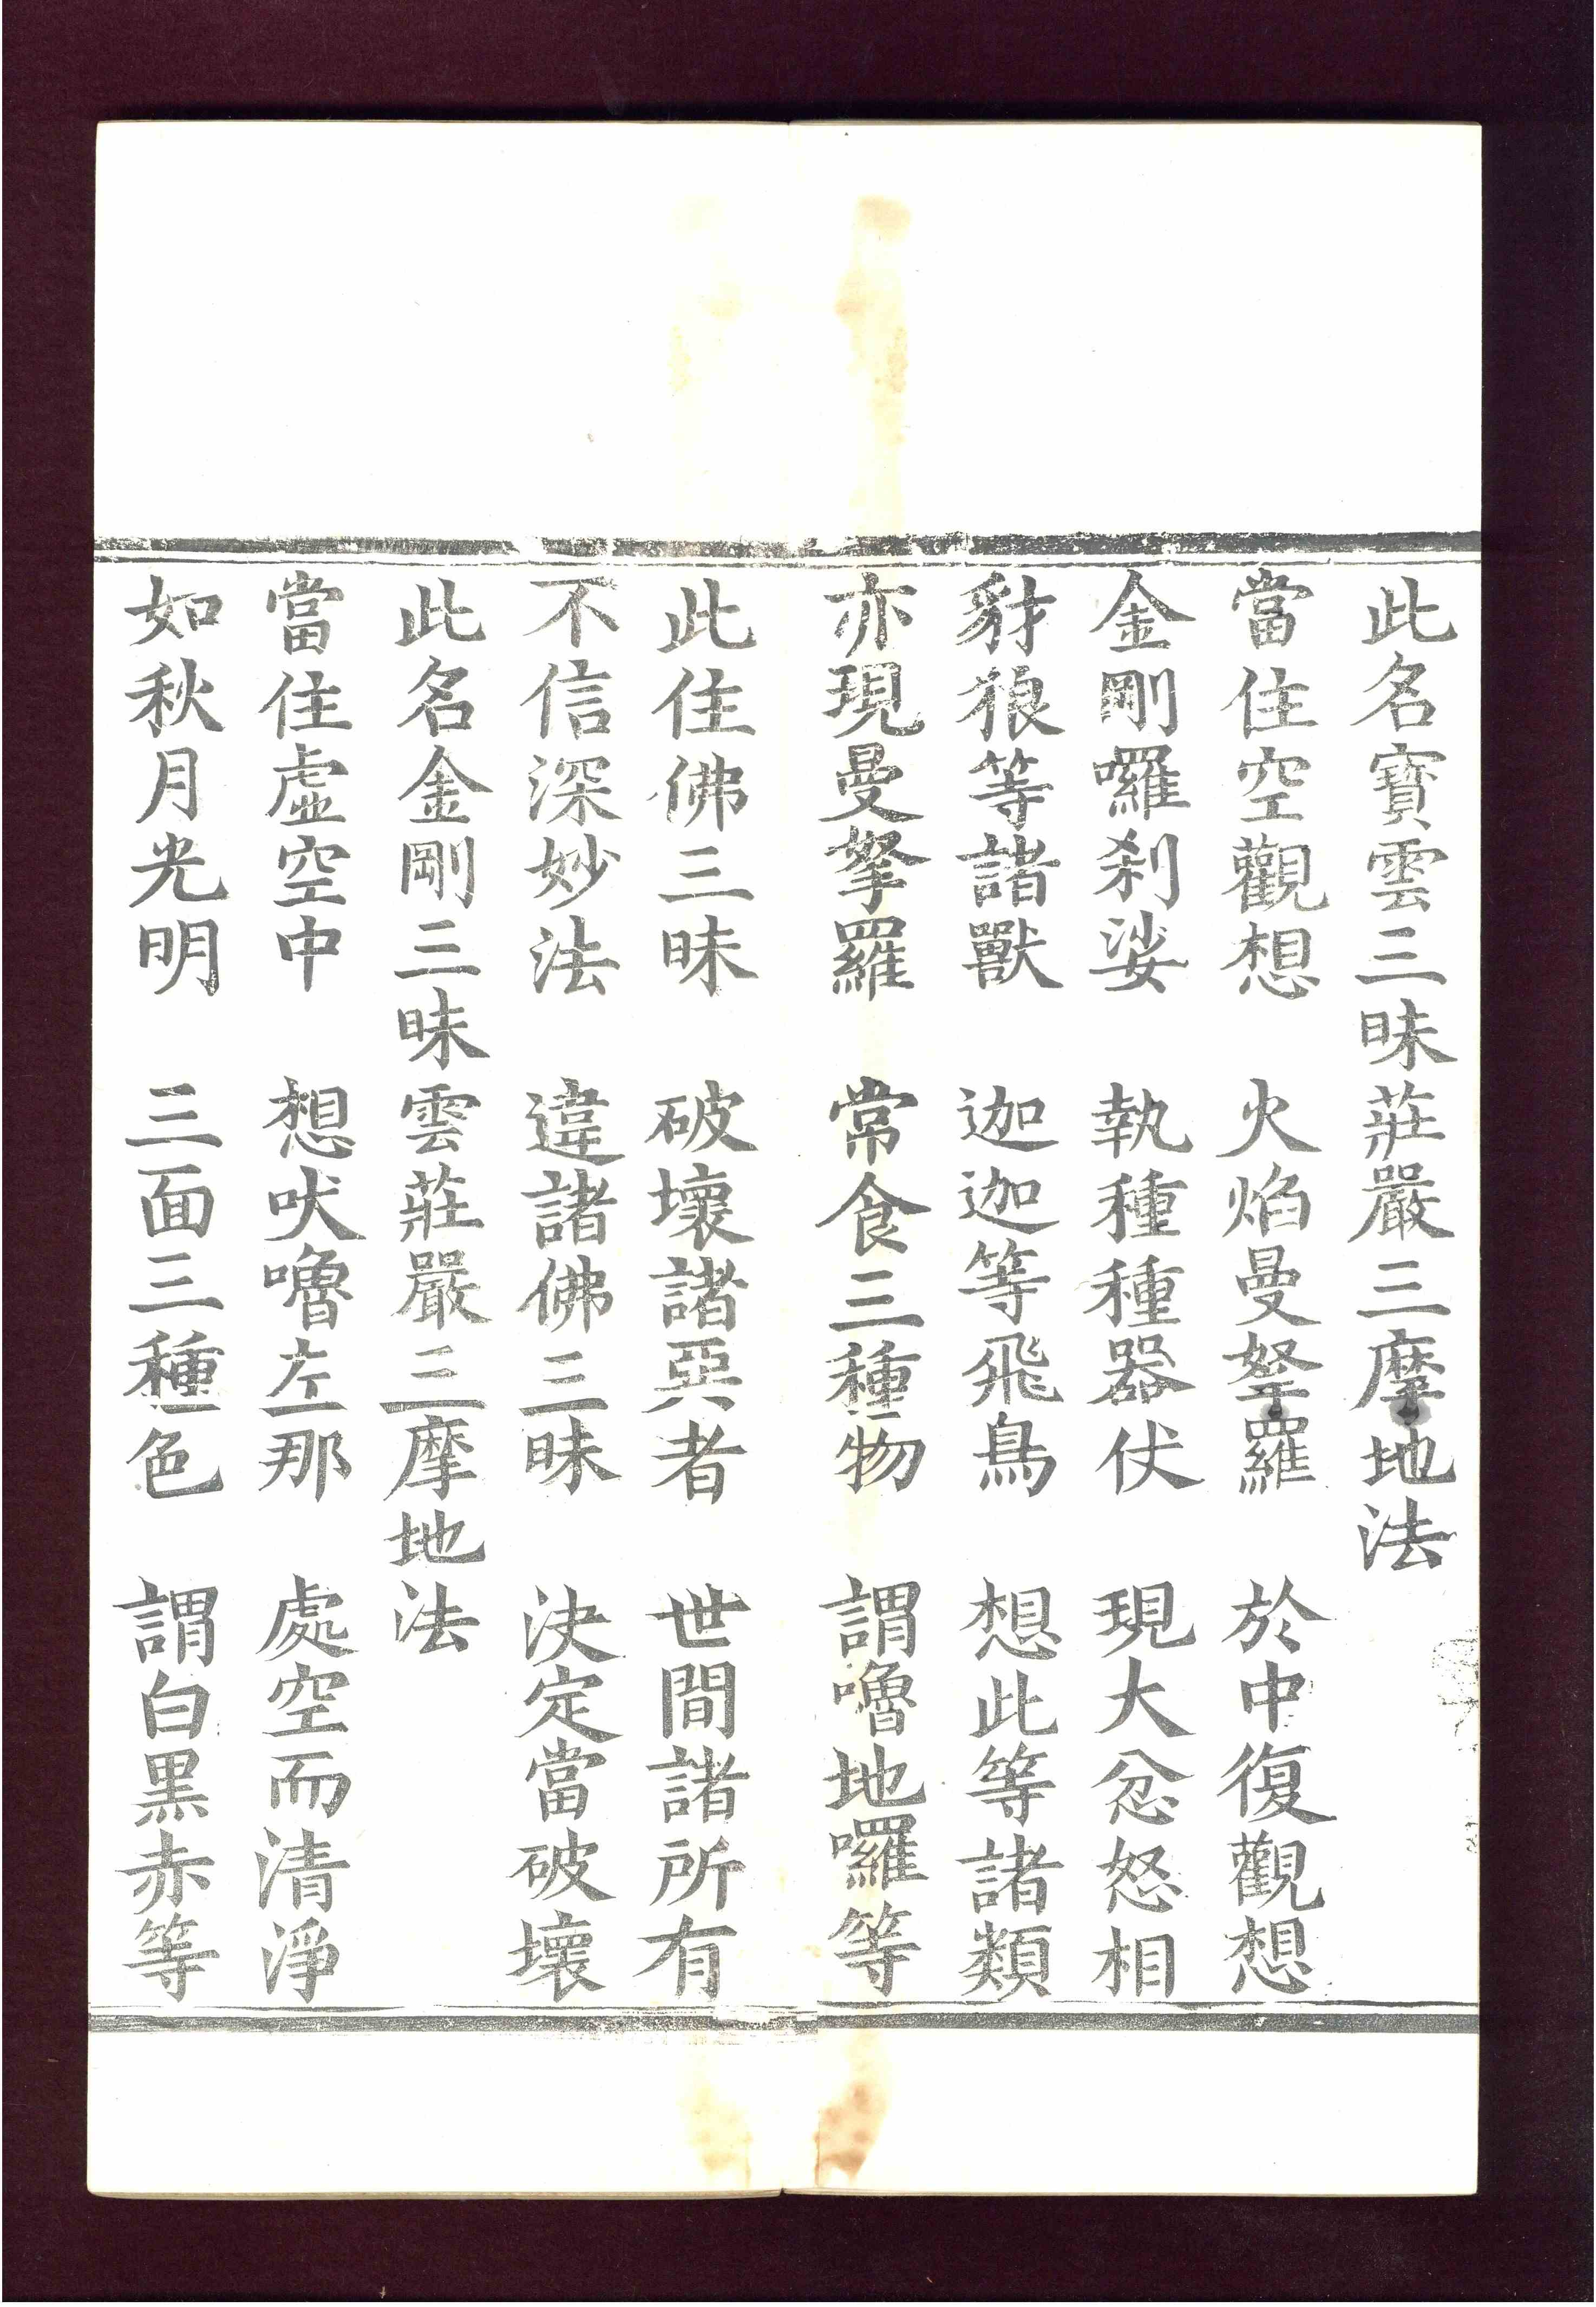 此名寶雲三昧莊嚴三摩地法
當住空觀想　火焰曼拏羅　於中復觀想
金剛囉剎娑　執種種器伏　現大忿怒相
豺狼等諸獸　迦迦等飛鳥　想此等諸類
亦現曼拏羅　常食三種物　謂嚕地囉等
此住佛三昧　破壞諸惡者　世間諸所有
不信深妙法　違諸佛三昧　決定當破壞
此名金剛三昧雲莊嚴三摩地法
當住虛空中　想吠嚕左那　處空而清淨
如秋月光明　三面三種色　謂白黑赤等